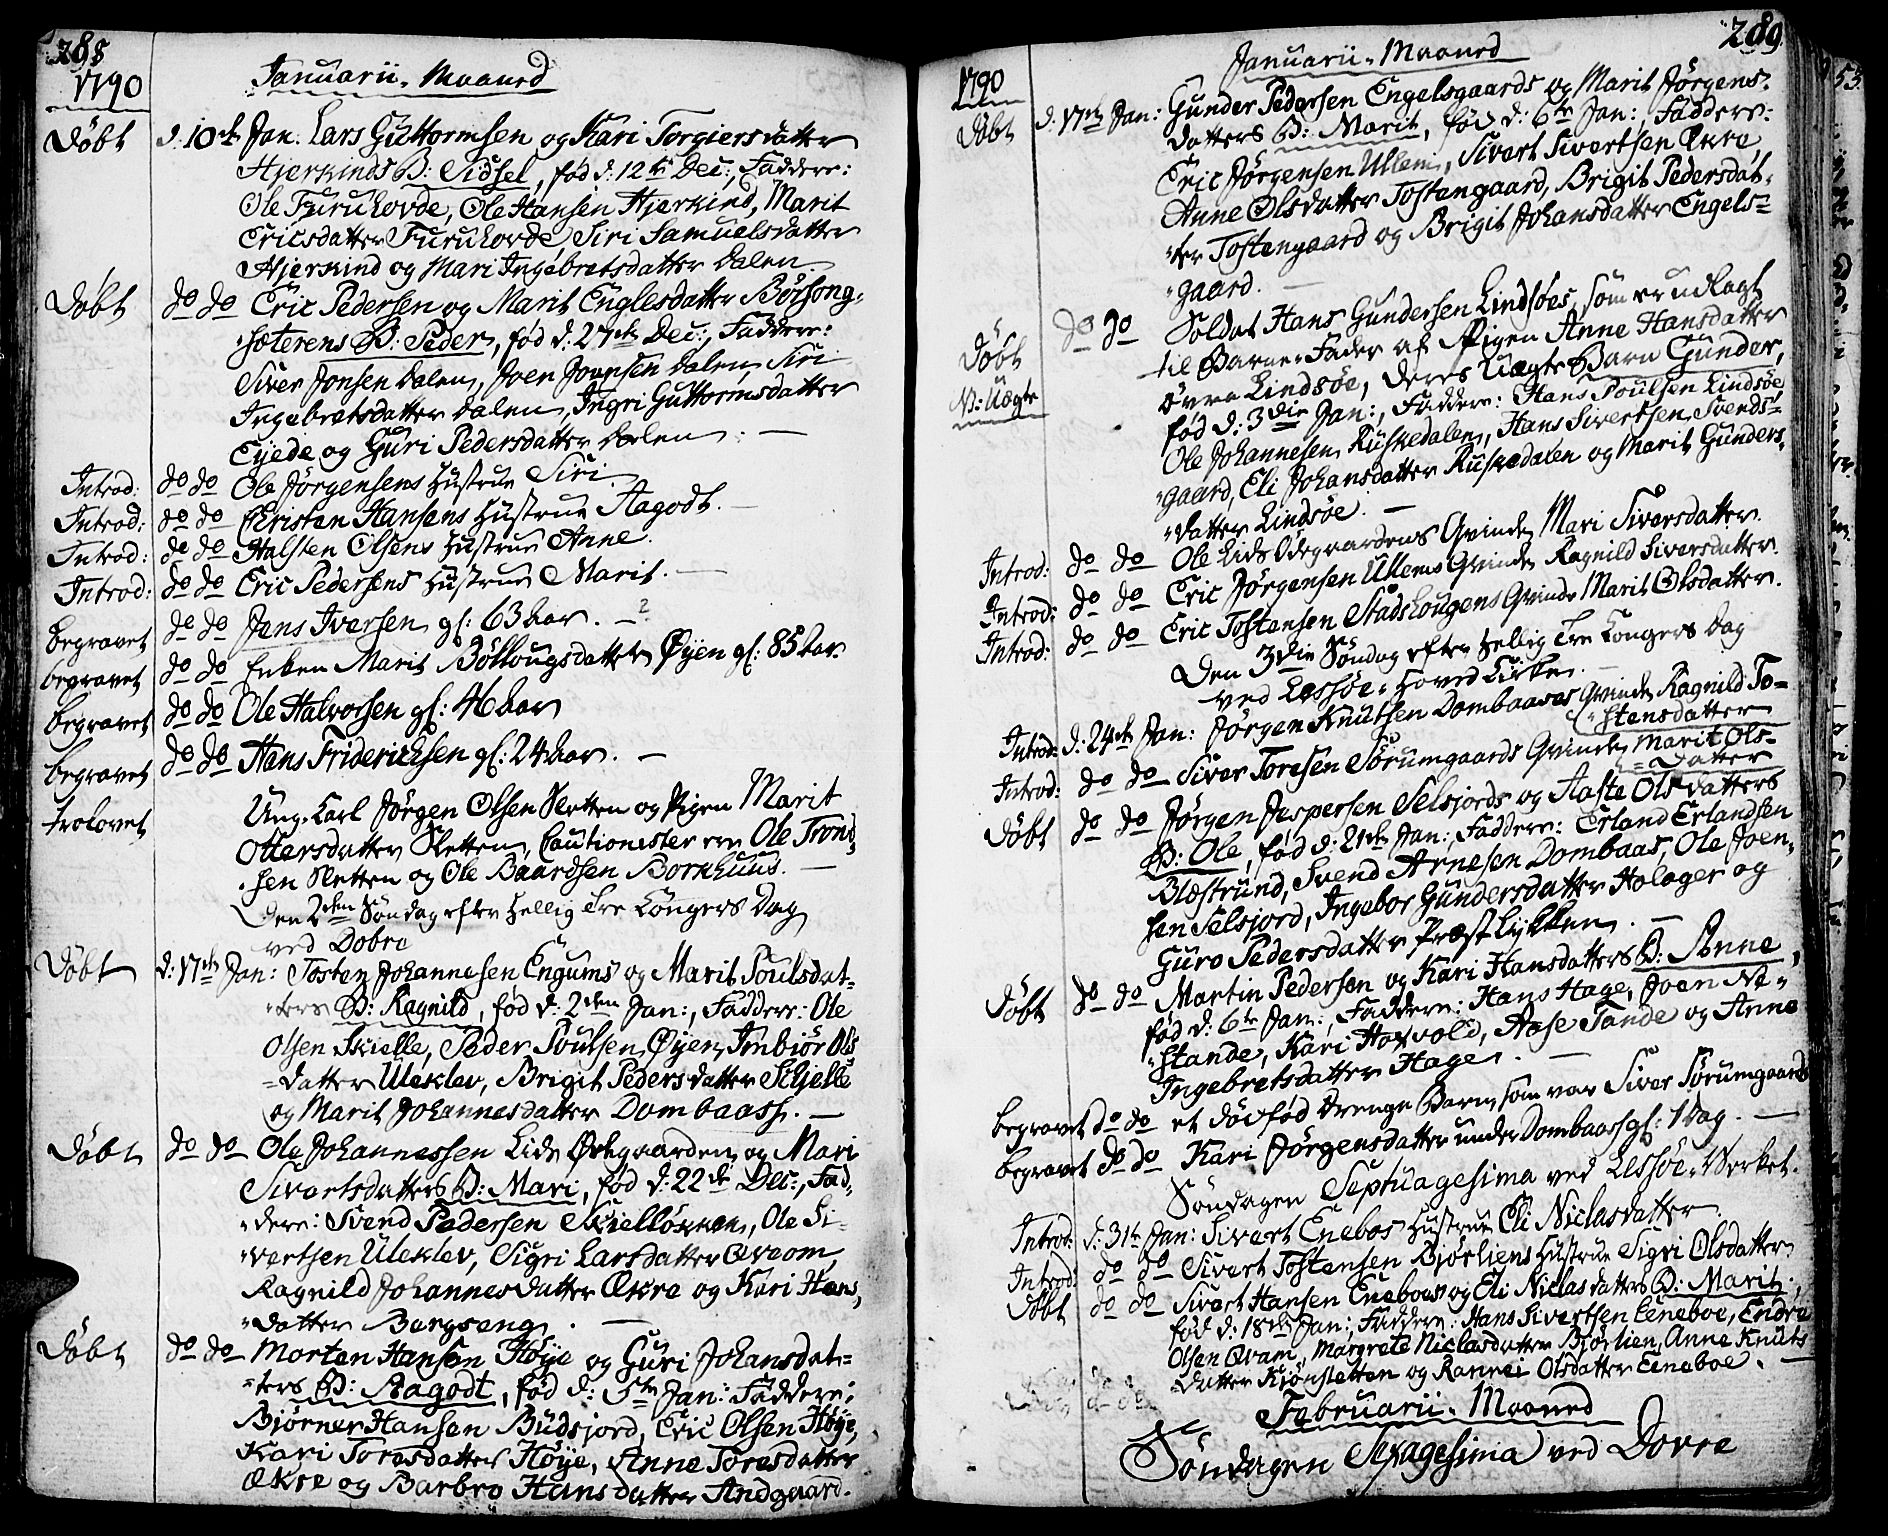 288
1790
Januarii Maaned
Døbt d: 10de Jan: Lars Guttormsen og Kari Torgiersdatter
Hjerkinds B: Sidsel, fød d: 12te Dec:, Faddere:
Ole Furuhovde, Ole Hansen Hjerkind, Marit
Ericsdatter Furuhovde, Siri Samuelsdatter
Hjerkind og Mari Ingebretsdatter Dalen
Døbt do do Eric Pedersen og Marit Englesdatter Børsong-
sæterens B: Peder, fød d: 27de Dec:, Faddere:
Siver Jonsen Dalen, Joen Joensen Dalen, Siri
Ingebretsdatter Dalen, Ingri Guttormsdatter
Eyede og Guri Pedersdatter Dalen. —
Introd: do do Ole Jørgensens Hustrue Siri
Introd: do do Christen Hansens Hustrue Aagodt. —
Introd: do do Halsten Olsens Hustrue Anne.
Introd: do do Eric Pedersens Hustrue Marit. —
begravet do do Jens Iversen gl: 63 aar. —
begravet do do Enken Marit Bøllougsdatter Øyen gl: 85 aar.
begravet do do Ole Halvorsen gl: 46 aar
begravet do do Hans Friderichsen gl: 24 aar. —
trolovet Ung-Karl Jørgen Olsen Sletten og Pigen Marit
Ottersdatter Sletten, Cautionister ere Ole Trond-
sen Sletten og Ole Baardsen Bornhuus. —
Den 2den Søndag efter Hellig Tre Kongers Dag
ved Dobre
Døbt d: 17de Jan: Tosten Johannesen Engums og Marit Poulsdat-
ters B: Ragnild, fød d: 2den Jan:, Faddere: Ole
Olsen Skielle, Peder Poulsen Øyen, Imbiør Ols-
datter Uleklev, Brigit Pedersdatter Schjelle
og Marit Johannesdatter Dombaass. —
Døbt do do Ole Johannessen Lide Ødegaarden og Mari
Sivertsdatters B: Mari, fød d: 22de Dec:, Fad-
dere: Svend Pedersen Skielløkken, Ole Si-
vertsen Uleklev, Sigri Larsdatter Qveom,
Ragnild Johannesdatter Ækre og Kari Hans-
datter Bergseng. —
Døbt do do Morten Hansen Høye og Guri Johansdat-
ters B: Aagodt, fød d: 5te Jan: Faddere:
Bjørner Hansen Budsjord, Eric Olsen Høye,
Kari Toresdatter Høye, Anne Toresdatter
Ækre og Barbro Hansdatter Andgaard.
289
1790
Januarii Maaned
Døbt d. 17de Jan: Gunder Pedersen Engelsgaards og Marit Jørgens-
datters B: Marit, fød d: 6te Jan:, Faddere:
Eric Jørgensen Ullem, Sivert Sivertsen Ækre,
Anne Olsdatter Tostengaard, Brigit Pedersdat-
ter Tostengaard og Brigit Johansdatter Engels-
gaard. —
Døbt do do Soldat Hans Gundersen Lindsøes, som er udlagt
N: Uægte til Barne-Fader af Pigen Anne Hansdatter
Øvre Lindsøe, deres Uægte Barn Gunder,
fød d: 3die Jan:, Faddere: Hans Poulsen Lindsøe
Ole Johannesen Ruskedalen, Hans Sivertsen Svends-
gaard, Eli Johansdatter Ruskedalen og Marit Gunders-
datter Lindsøe. —
Introd: do do Ole Lide Ødegaardens Qvinde Mari Siversdatter.
Introd: do do Eric Jørgensen Ullems Qvinde Ragnild Siversdatter.
Introd: do do Eric Tostensen Stadshougens Qvinde Marit Olsdatter.
Den 3die Søndag efter Hellig Tre Kongers Dag
ved Lessøe-Hoved Kirke. —
Introd: d: 24de Jan: Jørgen Knutsen Dombaases Qvinde Ragnild To-
stensdatter
Introd: do do Siver Toresen Sørumgaards Qvinde Marit Ols-
datter
Døbt do do Jørgen Jespersen Selsjords og Aaste Olsdatters
B: Ole, fød d: 21de Jan:, Faddere: Erland Erlandsen
Blæstrund, Svend Arnesen Dombaas, Ole Joen-
sen Selsjord, Ingebor Gundersdatter Holager og
Guro Pedersdatter Præstlykken. —
Døbt do do Martin Pedersen og Kari Hansdatters B: Anne,
fød d: 6te Jan:, Faddere: Hans Hage, Joen Ne-
stande, Kari Horvold, Aase Tande og Anne
Ingebretsdatter Hage. —
begravet do do et dødfød Drenge Barn, som var Siver Sørumgaards
begravet do do Kari Jørgensdatter under Dombaas gl: 1 Dag. —
Søndagen Septuagesima ved Lessøe-Verket.
Introd: d: 31te Jan: Sivert Enebos Hustrue Eli Niclasdatter.
Introd: do do Sivert Tostensen Bjørliens Hustrue Sigri Olsdatter
Døbt do do Sivert Hansen Eneboes og Eli Niclasdatters B: Marit,
fød d: 18de Jan:, Faddere: Hans Sivertsen Eeneboe, Endre
Olsen Qvam, Margrete Niclasdatter Bjørlien, Anne Knuts-
datter Kjønstetten og Rannei Olsdatter Eeneboe. —
Februarii Maaned
Søndagen Sexagesima ved Dovre